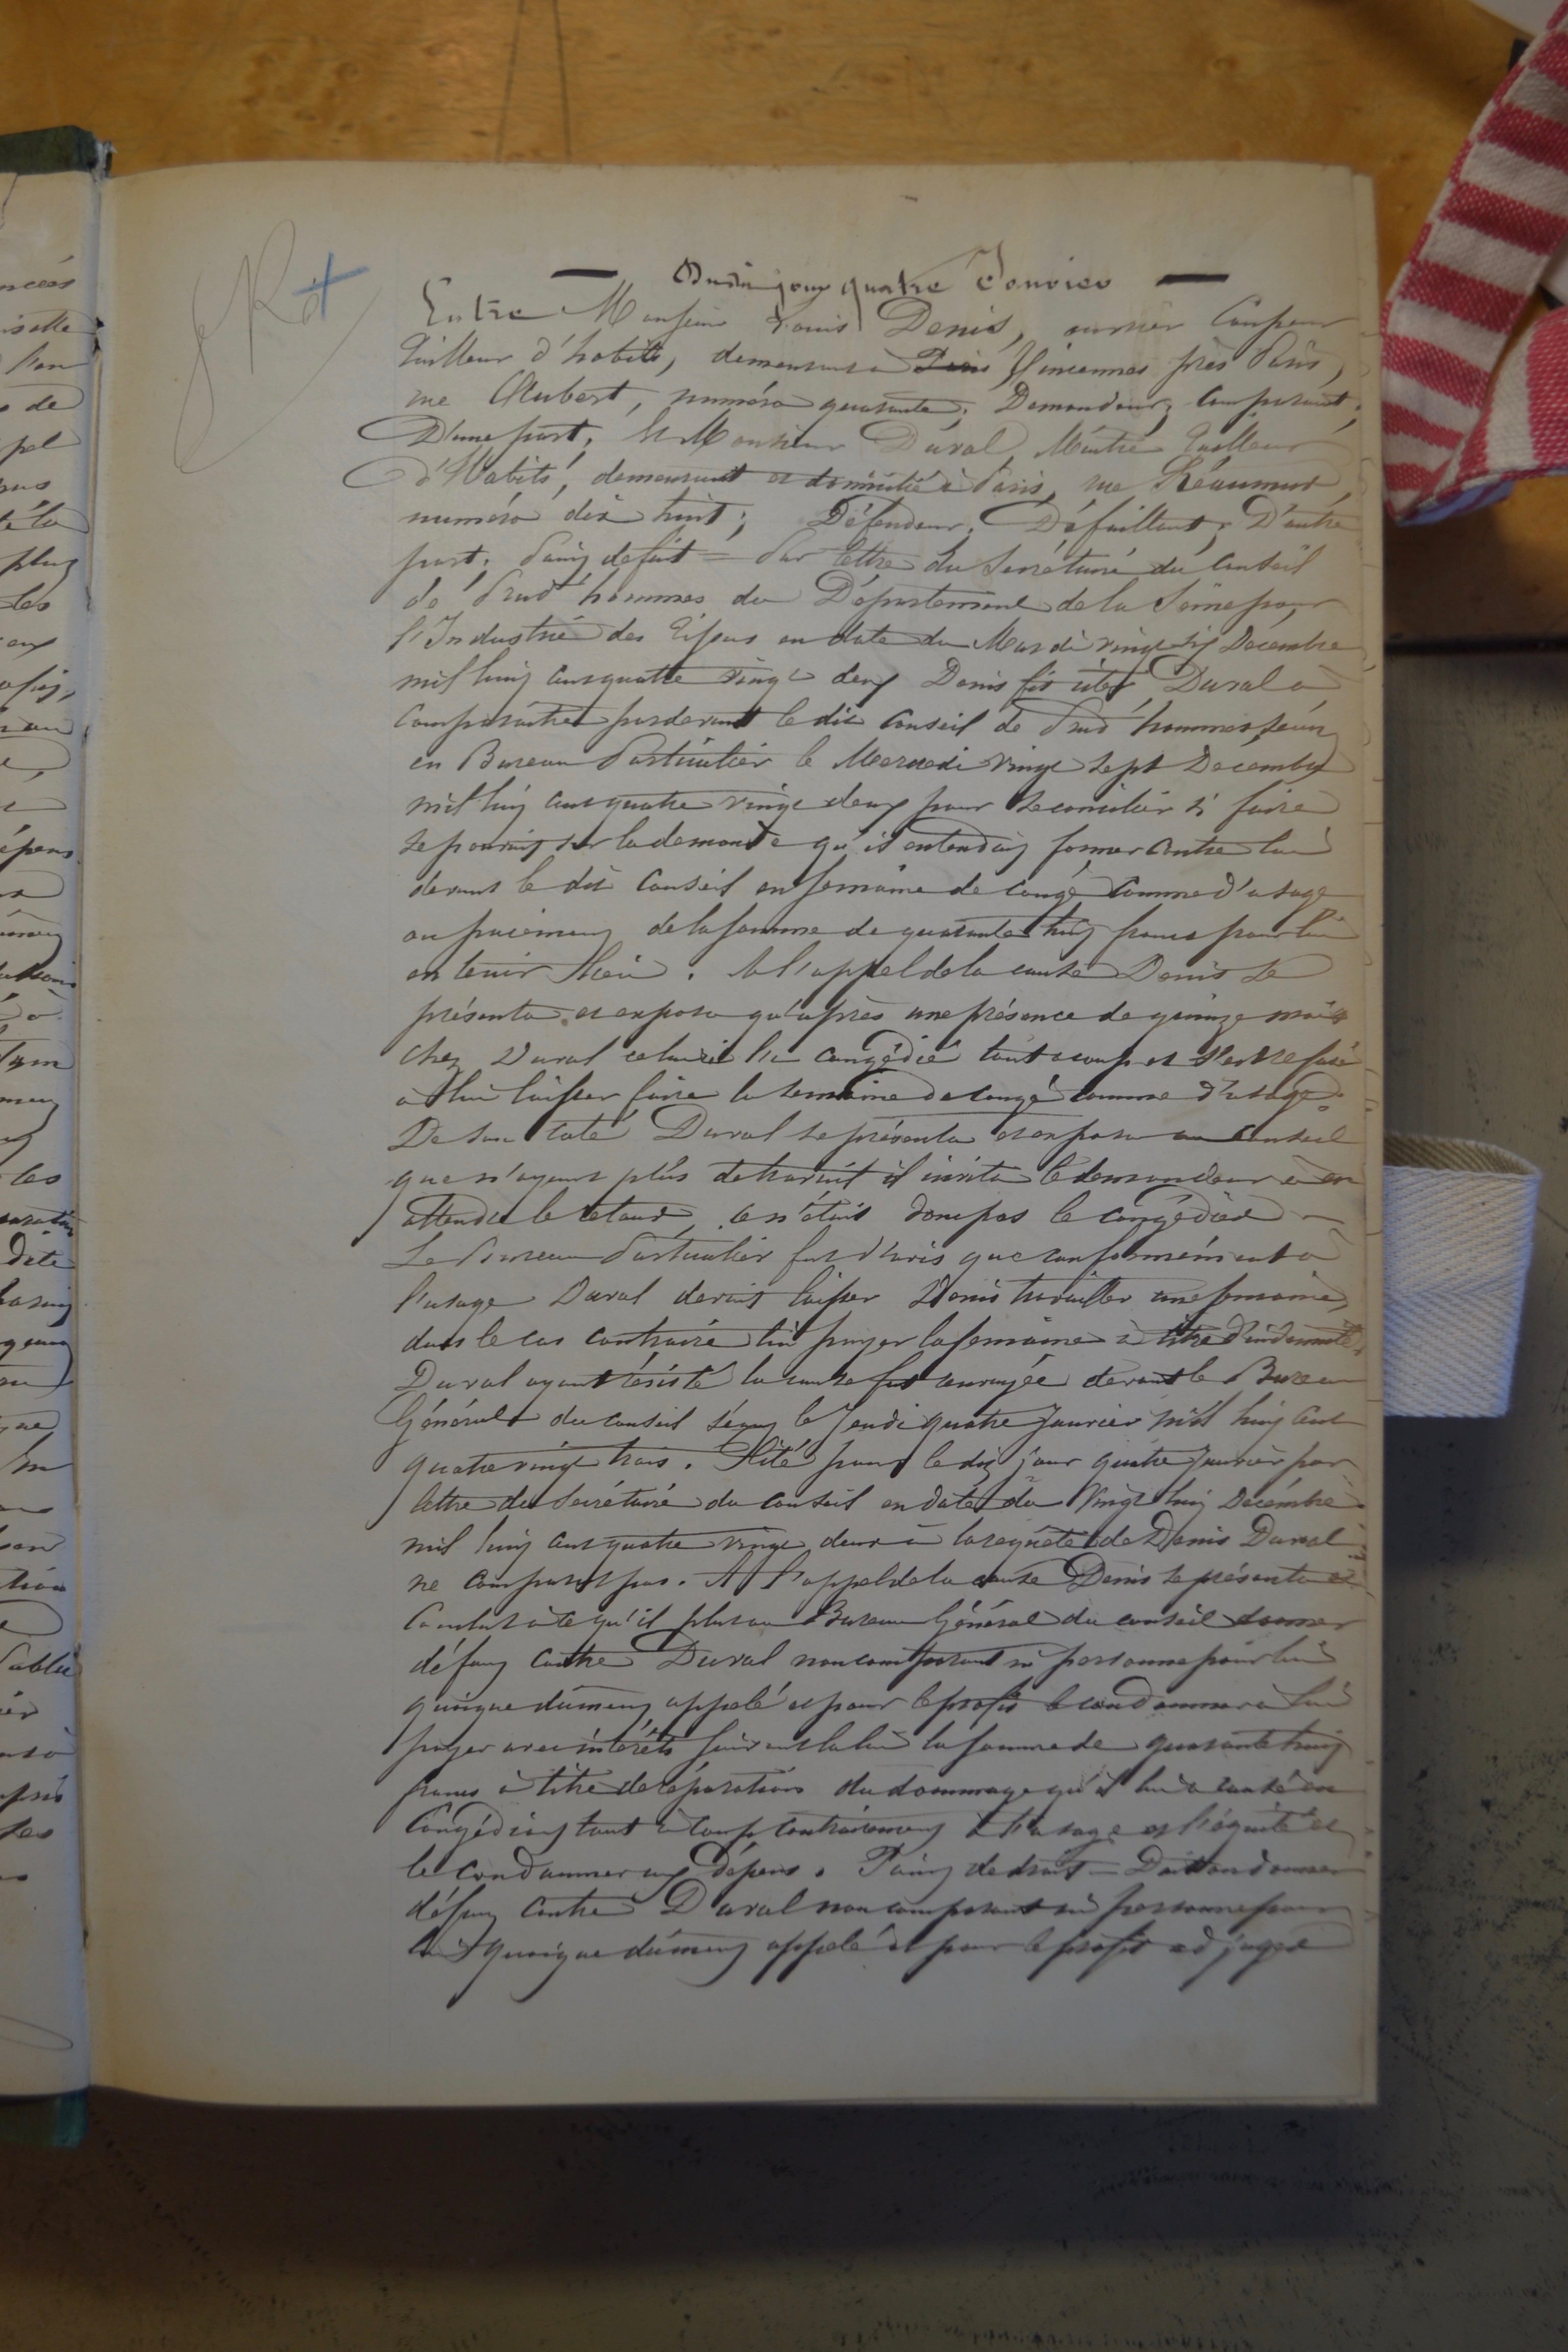 — Dudit jour quatre Janvier —
Entre Monsieur Louis Denis, ouvrier Coupeur
Tailleur d'habits, demeurant à Paris Vincennes près Paris,
rue Aubert, numéro quarante; Demandeur; Comparant;
D'une part; Et Monsieur Duval, Maître Tailleur
d'Habits, demeurant et domicilié à Paris, rue Réaumur,
numéro dix huit; Défendeur; Défaillant; D'autre
part; Point de fait = Par lettre du Secrétaire du Conseil
de Prud'hommes du Département de la Seine pour
l'Industrie des Tissus en date du Mardi vingt six Décembre
mil huit cent quatre vingt deux Denis fit citer Duval à
comparaître pardevant le dit Conseil de Prud'hommes séant
en Bureau Particulier le Mercredi vingt sept Décembre
mil huit cent quatre vingt deux pour se concilier si faire
se pouvait sur la demande qu'il entendait former contre lui
devant le dit Conseil en semaine de congé comme d'usage
ou paiement de la somme de quarante huit francs pour lui
en tenir lieu. A l'appel de la cause Denis se
présenta et exposa qu'après une présence de quinze mois
chez Duval celui-ci l'a congédié tout à coup et s'est refusé
à lui laisser faire la semaine de congé comme d'usage.
De son côté Duval se présenta et exposa au Conseil
que n'ayant plus de travail il invita le demandeur à en
attendre le retour, ce n'était donc pas le congédier —
Le Bureau Particulier fut d'avis que conformément à
l'usage Duval devait laisser Denis travailler une semaine,
dans le cas contraire lui payer la semaine à titre d'indemnité.
Duval ayant résisté la cause fut renvoyée devant le Bureau
Général du Conseil séant le Jeudi quatre Janvier mil huit cent
quatre vingt trois. Cité pour le dit jour quatre Janvier par
lettre du Secrétaire du Conseil en date du vingt huit Décembre
mil huit cent quatre vingt deux à la requête de Denis Duval
ne comparut pas. A l'appel de la cause Denis se présenta et
conclut à ce qu'il plut au Bureau Général du Conseil donner
défaut contre Duval non comparant ni personne pour lui
quoique dûment appelé et pour le profit le condamner à lui
payer avec intérêts suivant la loi la somme de quarante huit
francs à titre de réparations du dommage qu'il lui a causé en
congédiant tout à coup contrairement à l'usage et l'équité et
le condamner aux dépens. Point de droit — Doit-on donner
défaut contre Duval non comparant ni personne pour
lui quoique dûment appelé et pour le profit adjuger